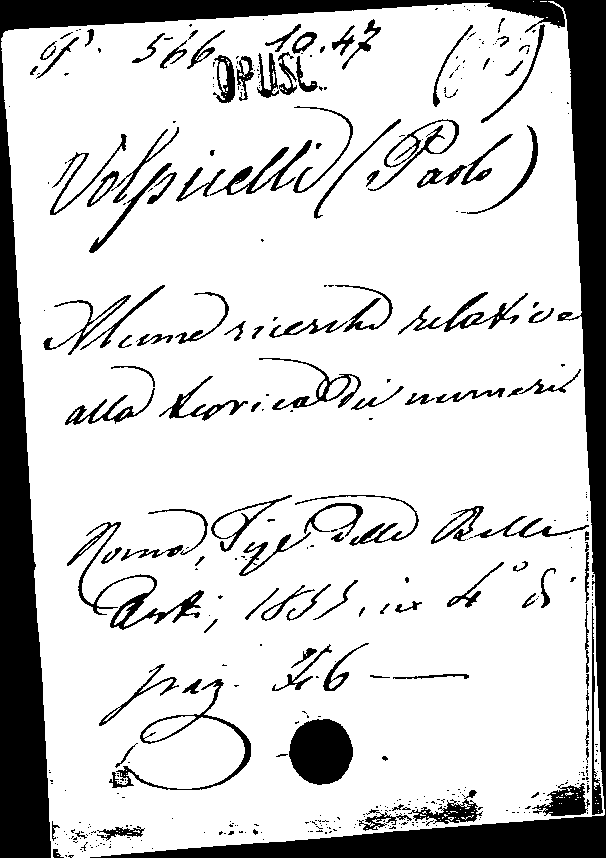 P. 566 10.47
OPUSC.
Volpicelli (Paolo)
Alcune ricerche relative
alla teorica dei numeri
Roma, Tip. delle Belle
Arti, 1855, in 4° di
pag. 46 —